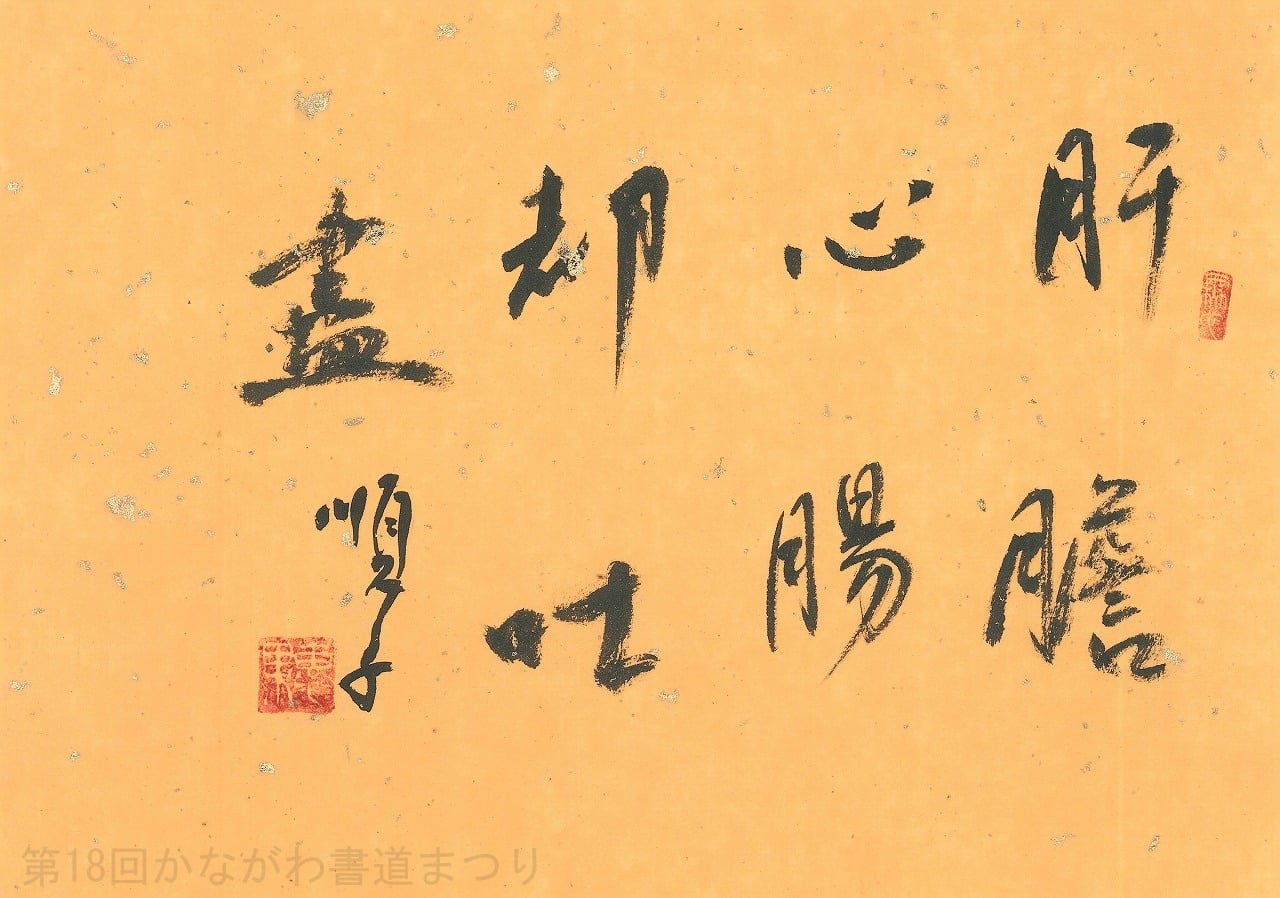 肝膽
心腸
却吐
盡
順子
第18回かながわ書道まつり